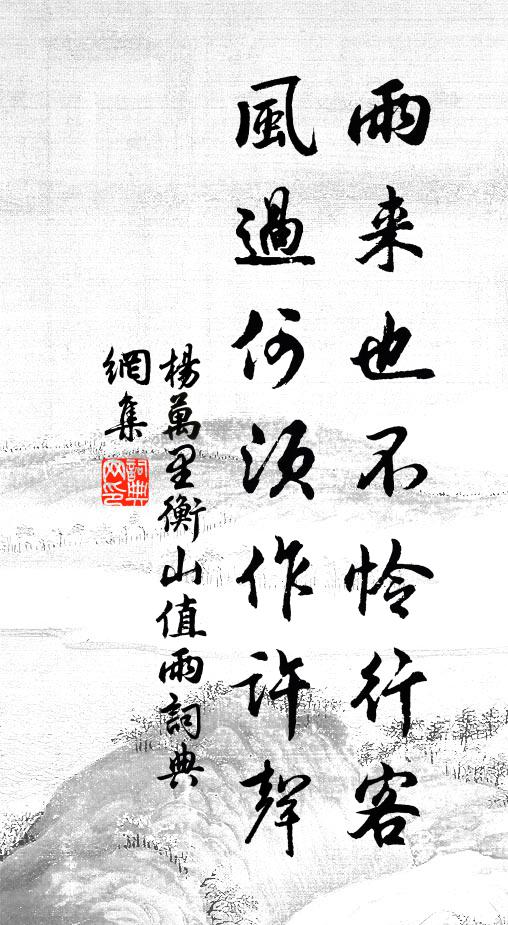 雨来也不怜行客
風過何須作許聲
楊萬里衡山值雨詞典
網集
詞典
网印